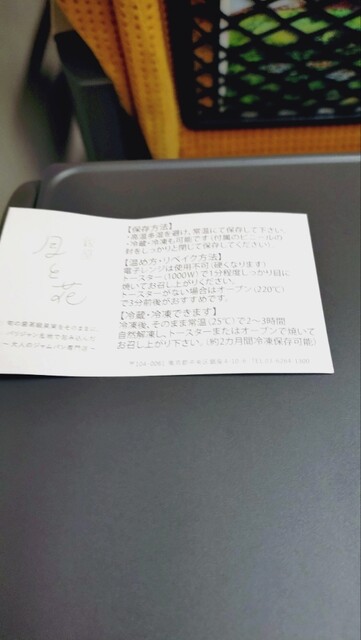 月と花
【保存方法】
・高温多湿を避け、常温にて保存して下さい。
・冷蔵・冷凍も可能です(付属のビニールの
封をしっかりと閉じて保存してください)
【温め方・リベイク方法】
電子レンジは使用不可(硬くなります)
トースター(1000W)で1分程度しっかり目に
焼いてお召し上がりください。
トースターがない場合はオーブン(220℃)
で3分前後がおすすめです。
【冷蔵・冷凍できます】
冷凍後、そのまま常温(25℃)で2〜3時間
自然解凍し、トースターまたはオーブンで焼いて
お召し上がり下さい。(約2カ月間冷凍保存可能)
〜大人のジャムパン専門店〜